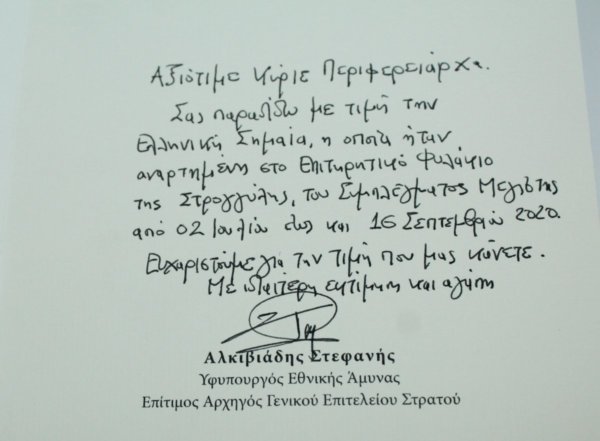 Αξιότιμε κύριε Περιφερειάρχα.
Σας παραδίδω με τιμή την
Ελληνική Σημαία, η οποία ήταν
αναρτημένη στο Επιτηρητικό Φυλάκιο
της Στρογγύλης, του Συμπλέγματος Μεγίστης
από 02 Ιουλίου έως και 16 Σεπτεμβρίου 2020.
Ευχαριστούμε για την τιμή που μας κάνετε.
Με ιδιαίτερη εκτίμηση και αγάπη
Αλκιβιάδης Στεφανής
Υφυπουργός Εθνικής Άμυνας
Επίτιμος Αρχηγός Γενικού Επιτελείου Στρατού